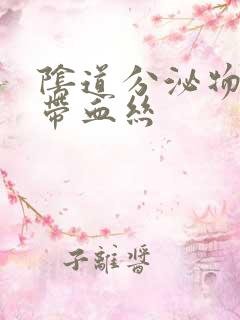 陰道分泌物
帶血絲
子離醬